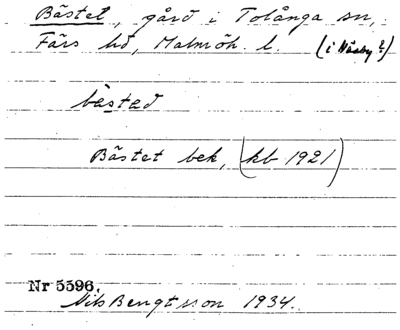 Bästet, gård i Tolånga sn,
Färs hd, Malmöh. l. (i Näsby?)
bästad
Bästet bek, (kb 1921)
Nr 5596.
Nils Bengtsson 1934.